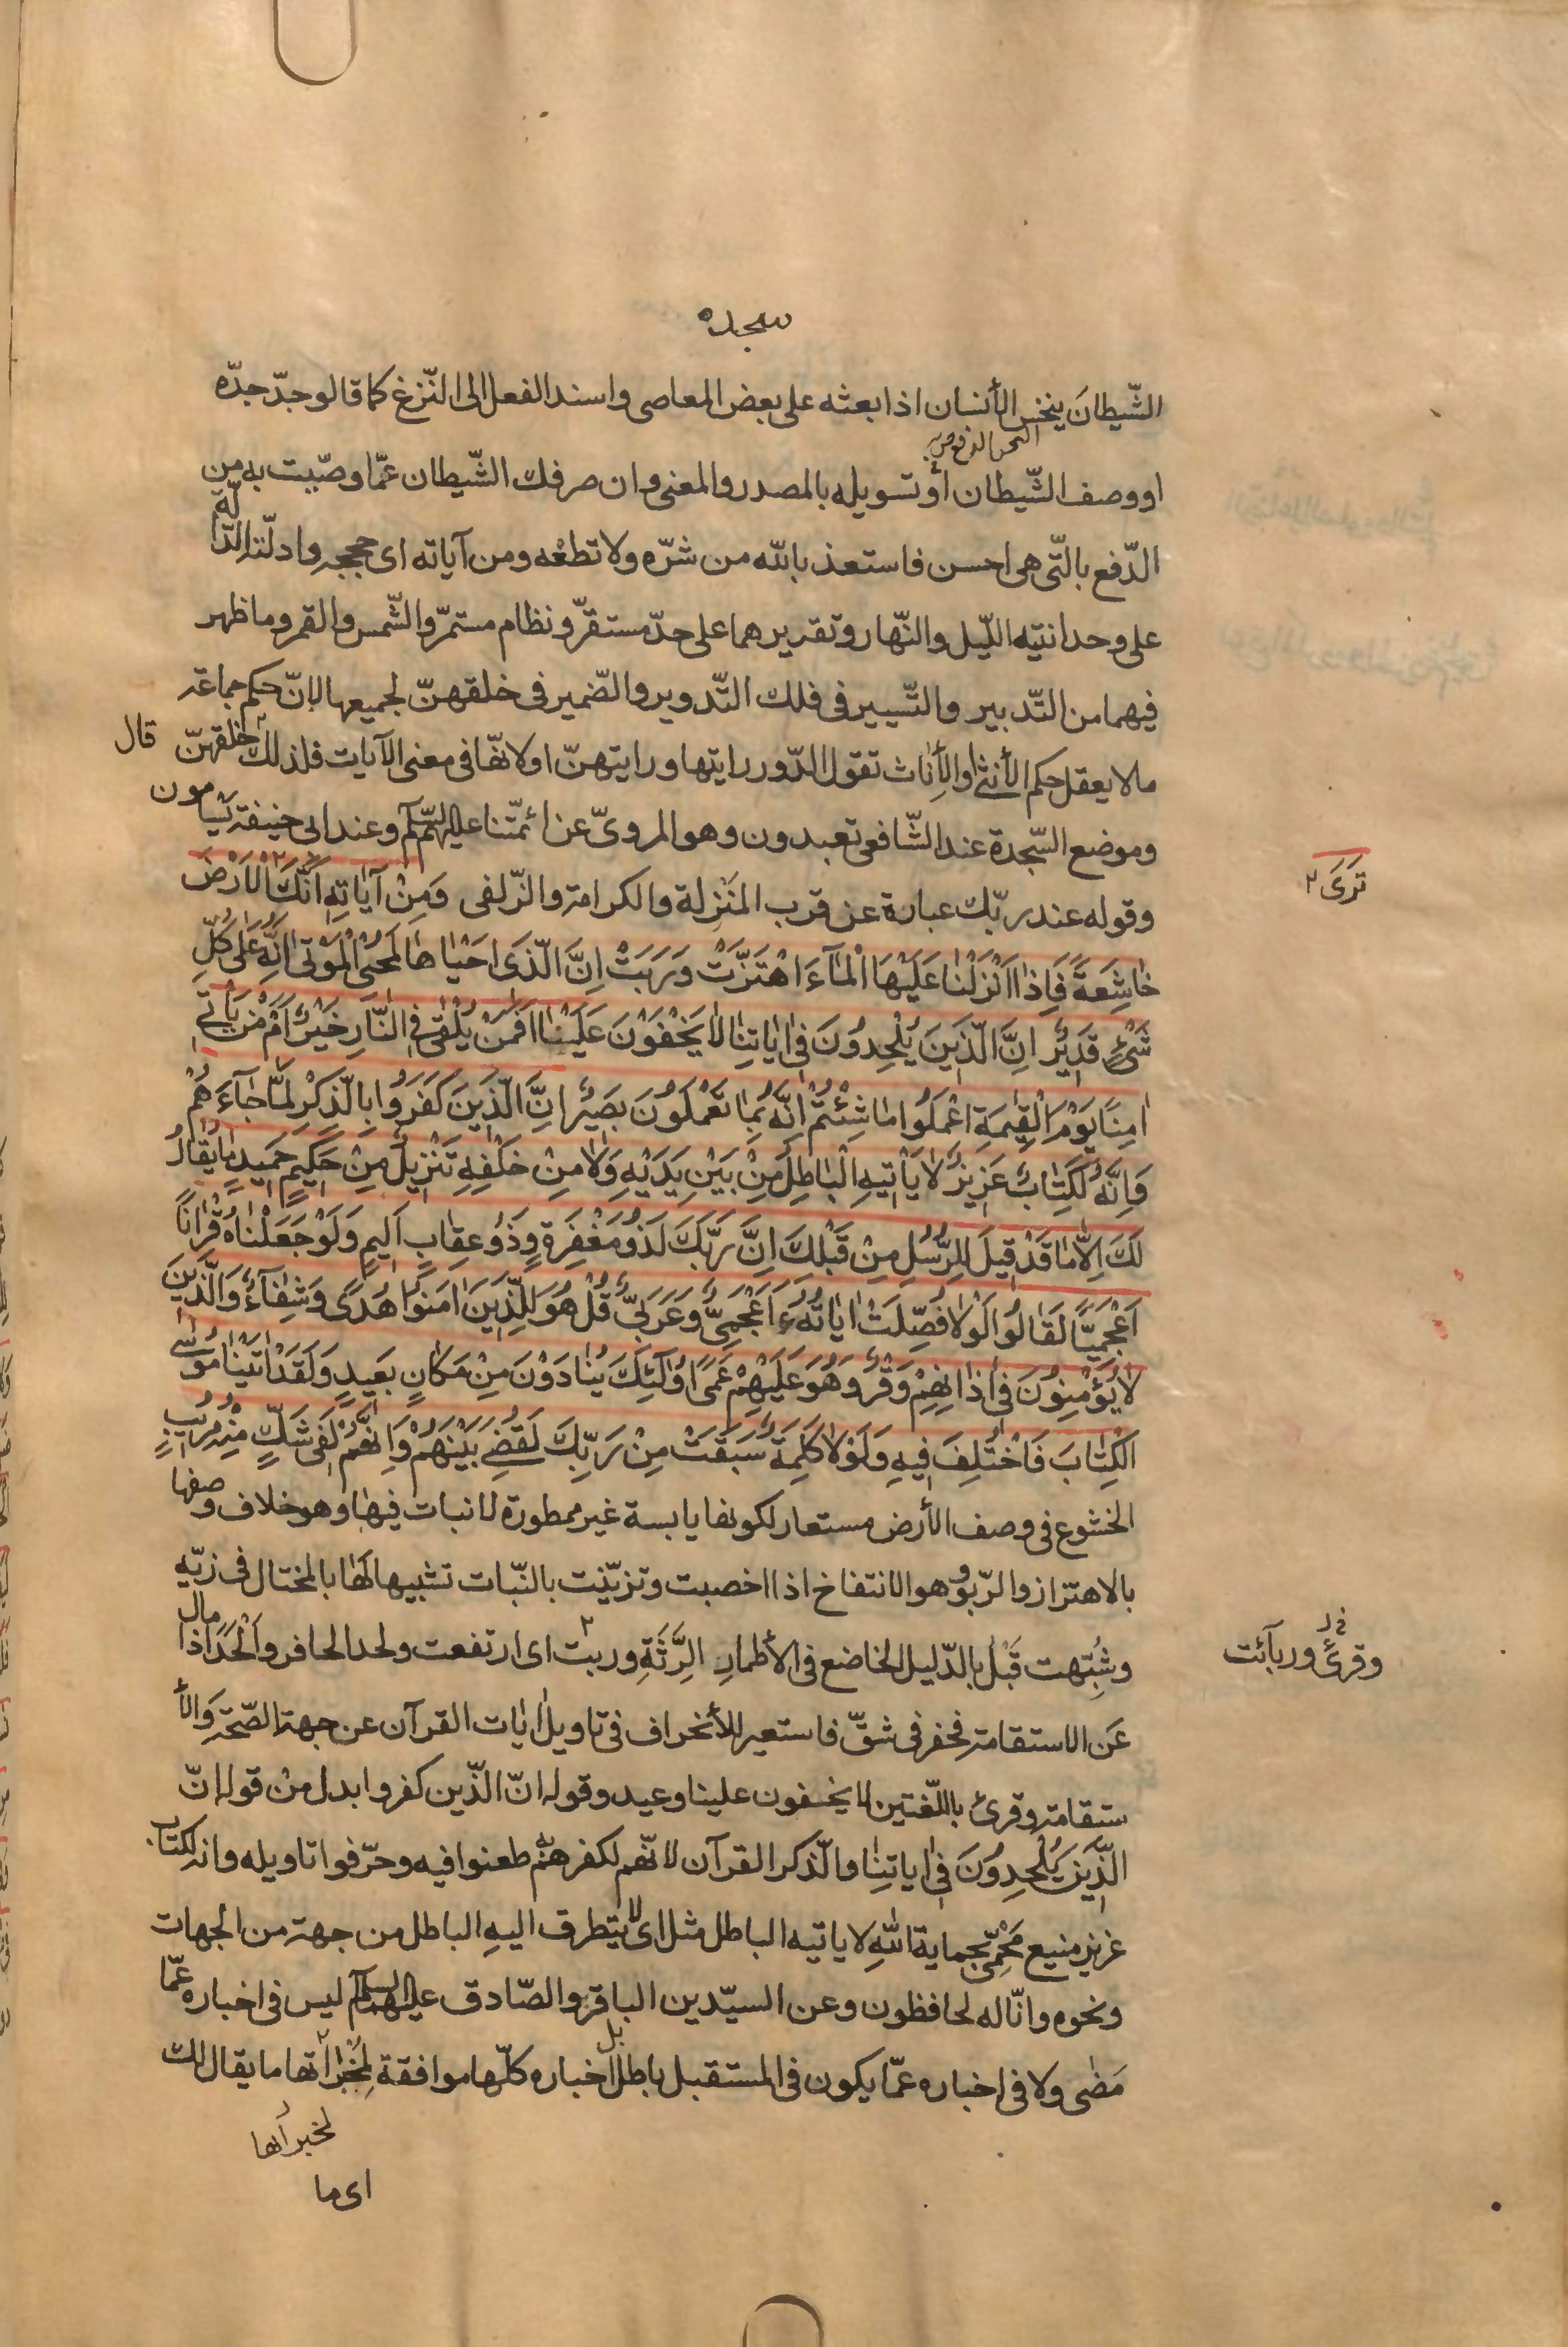 سجده
الشّيطانَ ينخس الأنسان اذا بعثه على بعض المعاصى واسند الفعل الى النّزغ كما قالو جدّ جدّه
او وصف الشّيطان أو تسويله بالمصدر والمعنى وان صرفك الشّيطان عمّا وصّيت به من
الدّفع بالتّى هى احسن فاستعذ بالله من شرّه ولا تطعْه ومن آياته اى حججه وادلّته الدّالّة
على وحدانيّته اللّيل والنّهار وتقديرهما على حدّ مستقرّ ونظام مستمرّ والشّمس والقمر وما ظهر
فيهما من التّدبير والتّسيير فى فلك التّدوير والضّمير فى خلقهنّ لجميعها لانّ حكم جماعة
ما لا يعقل حكم الأنثى او الأناث تقول الدّور رايتها ورايتهنّ او لانّها فى معنى الآيات فلذلك قال خلقهنّ
وموضع السّجدة عند الشّافعى تعبدون وهو المروىّ عن ائمّتنا عليهم السّلم وعند ابى حنيفة يسامون
وقوله عند ربّك عبارة عن قرب المنزلة والكرامة والزّلفى وَمِنْ آيَاتِهِ اَنَّكَ الْاَرْضَ
ترَى
خَاشِعَةً فَاِذَا اَنْزَلْنَا عَلَيْهَا الْمَآءَ اهْتَزَّتْ وَرَبَتْ اِنَّ الَّذى اَحْيَاهَا لَمُحْىِ الْمَوْتَى اِنَّهُ عَلَى كُلِّ
شَىْءٍ قَديرٌ اِنَّ الَّذينَ يُلْحِدُونَ فى اٰيَاتِنَا لَا يَخْفَوْنَ عَلَيْنَا اَفَمَنْ يُلْقَى فِى النَّارِ خَيْرٌ اَمْ مَنْ يَأْتى
اٰمِنًا يَوْمَ الْقِيٰمَةِ اعْمَلُوا مَا شِئْتُمْ اِنَّهُ بِمَا تَعْمَلُونَ بَصيرٌ اِنَّ الَّذينَ كَفَرُوا بِالذِّكْرِ لَمَّا جَآءَهُمْ
وَاِنَّهُ لَكِتَابٌ عَزيزٌ لَا يَأْتيهِ الْبَاطِلُ مِنْ بَيْنِ يَدَيْهِ وَلَا مِنْ خَلْفِهِ تَنْزيلٌ مِنْ حَكيمٍ حَميدٍ مَا يُقَالُ
لَكَ اِلَّا مَا قَدْ قيلَ لِلرُّسُلِ مِنْ قَبْلِكَ اِنَّ رَبَّكَ لَذُو مَغْفِرَةٍ وَذُو عِقَابٍ اَليمٍ وَلَوْ جَعَلْنَاهُ قُرْاٰنًا
اَعْجَمِيًّا لَقَالُوا لَوْلَا فُصِّلَتْ اٰيَاتُهُ ءَاَعْجَمِىٌّ وَعَرَبِىٌّ قُلْ هُوَ لِلَّذينَ اٰمَنُوا هُدًى وَشِفَآءٌ وَالَّذينَ
لَا يُؤْمِنُونَ فى اٰذَانِهِمْ وَقْرٌ وَهُوَ عَلَيْهِمْ عَمًى اُولٰٓئِكَ يُنَادَوْنَ مِنْ مَكَانٍ بَعيدٍ وَلَقَدْ اٰتَيْنَا مُوسَى
الْكِتَابَ فَاخْتُلِفَ فيهِ وَلَوْلَا كَلِمَةٌ سَبَقَتْ مِنْ رَبِّكَ لَقُضِىَ بَيْنَهُمْ وَاِنَّهُمْ لَفى شَكٍّ مِنْهُ مُريبٍ
الخشوع فى وصف الأرض مستعار لكونها يابسة غير ممطورة لا نبات فيها وهو خلاف وصفها
بالاهتزاز والرّبوّ وهو الانتفاخ اذا اخصبت وتزيّنت بالنّبات تشبيها لها بالمختال فى زيّه
وشُبّهت قَبْل بالذّليل الخاضع فى الأطمارِ الرَّثَّةِ وربت اى ارتفعت ولحد الحافر وألحد اذا مال
وقرئ وربأت
عَن الاستقامة فحفر فى شقّ فاستعير للأنحراف فى تاويل ايات القرآن عن جهة الصّحّة والأ
ستقامة وقرئ باللّغتين لا يخفون علينا وعيد وقوله انّ الّذين كفروا بدل منْ قوله انّ
الَّذينَ يُلْحِدُونَ فى اٰياتِنا والذّكر القرآن لانّهم لكفرهم طعنوا فيه وحرّفوا تاويله وانه لكتاب
عزيز منيع مَحْمىّ بحماية الله لا ياتيه الباطل مثل اى لا يتطرق اليهِ الباطل من جهة من الجهات
ونحوه وانّا له لحافظون وعن السيّدين الباقر والصّادق عليهما السلم ليس فى اخباره عمّا
مَضى ولا فى اخباره عمّا يكون فى المستقبل باطل بل اخباره كلّها موافقة لمخبراتها ما يقال لك
لمخبراتها
اى ما